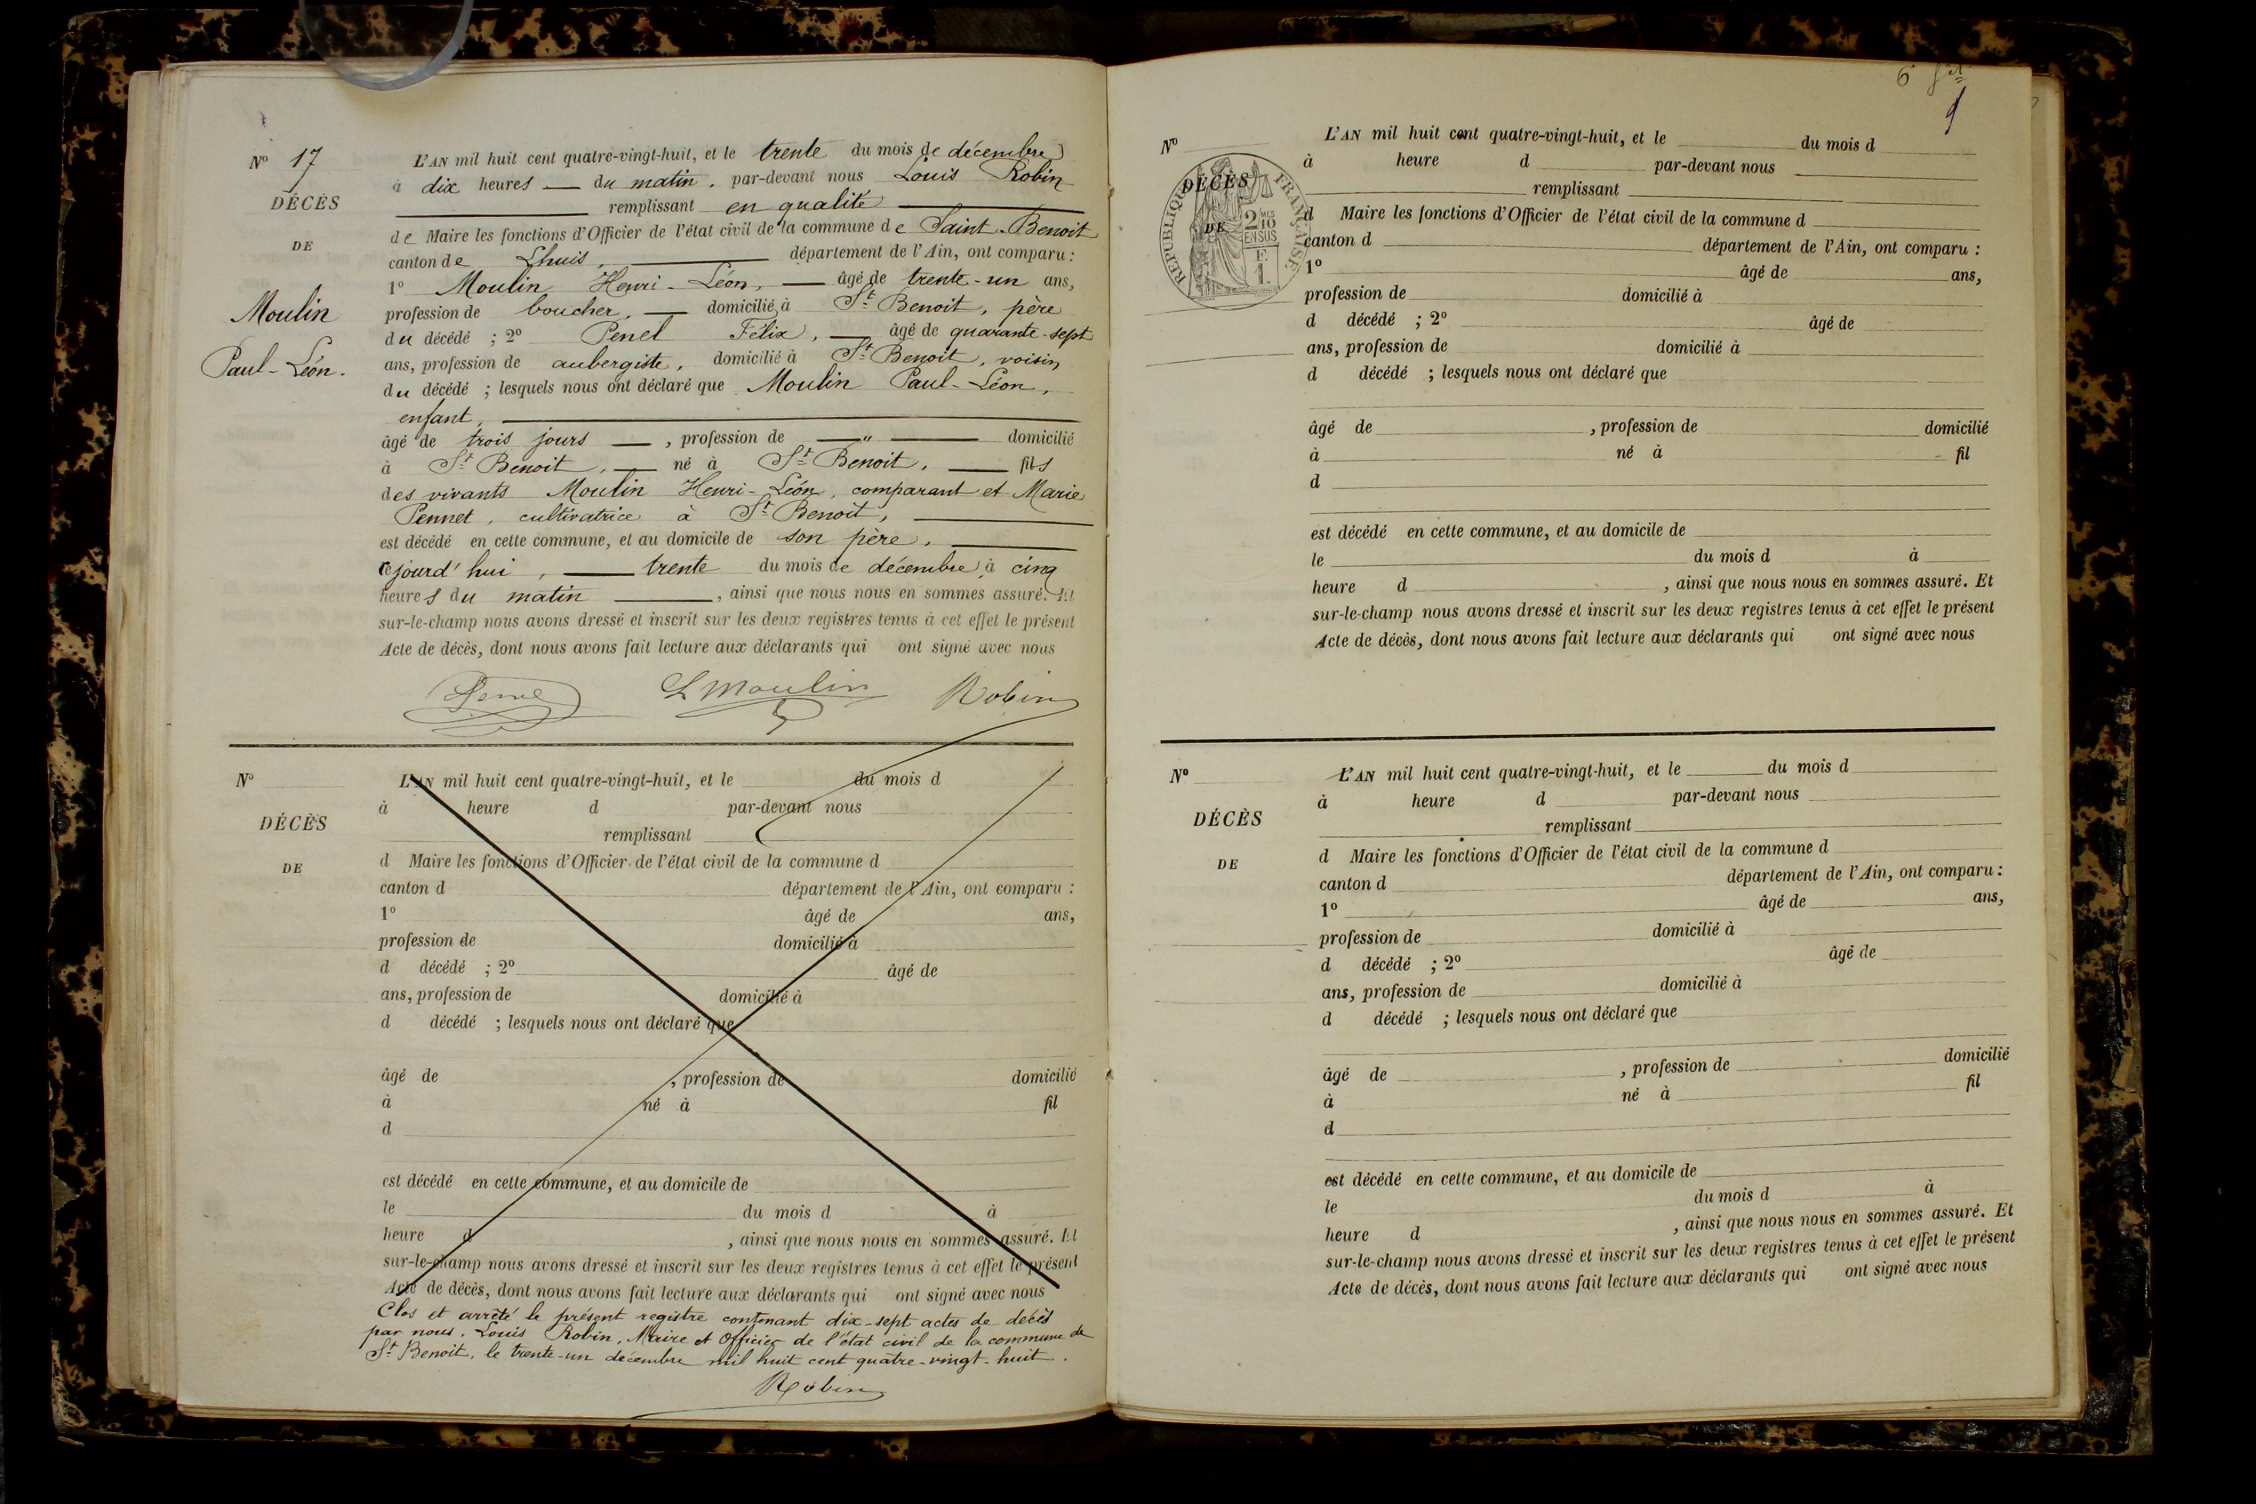 Nº 17
DÉCÈS
DE
Moulin
Paul-Léon.
L'AN mil huit cent quatre-vingt-huit, et le trente du mois de décembre
à dix heures du matin, par-devant nous Louis Robin
remplissant en qualité
de Maire les fonctions d'Officier de l'état civil de la commune de Saint-Benoit
canton de Lhuis, département de l'Ain, ont comparu :
1º Moulin Henri-Léon, âgé de trente-un ans,
profession de boucher, domicilié à St Benoit, père
du décédé ; 2º Penel Félix, âgé de quarante-sept
ans, profession de aubergiste, domicilié à St Benoit, voisin
du décédé ; lesquels nous ont déclaré que Moulin Paul-Léon,
enfant,
âgé de trois jours, profession de " domicilié
à St Benoit, né à St Benoit, fils
des vivants Moulin Henri-Léon, comparant et Marie
Pennet, cultivatrice à St Benoit,
est décédé en cette commune, et au domicile de son père,
cejourd'hui, trente du mois de décembre à cinq
heures du matin, ainsi que nous nous en sommes assuré. Et
sur-le-champ nous avons dressé et inscrit sur les deux registres tenus à cet effet le présent
Acte de décès, dont nous avons fait lecture aux déclarants qui ont signé avec nous
L Moulin Robin
Nº
DÉCÈS
DE
L'AN mil huit cent quatre-vingt-huit, et le du mois d
à heure d par-devant nous
remplissant
d Maire les fonctions d'Officier de l'état civil de la commune d
canton d département de l'Ain, ont comparu :
1º âgé de ans,
profession de domicilié à
d décédé ; 2º âgé de
ans, profession de domicilié à
d décédé ; lesquels nous ont déclaré que
âgé de , profession de domicilié
à né à fil
d
est décédé en cette commune, et au domicile de
le du mois d à
heure d , ainsi que nous nous en sommes assuré. Et
sur-le-champ nous avons dressé et inscrit sur les deux registres tenus à cet effet le présent
Acte de décès, dont nous avons fait lecture aux déclarants qui ont signé avec nous
Clos et arrêté le présent registre contenant dix-sept actes de décès
par nous, Louis Robin, Maire et Officier de l'état civil de la commune de
St Benoit, le trente-un décembre mil huit cent quatre-vingt-huit.
Robin
6
Nº
DÉCÈS
DE
RÉPUBLIQUE FRANÇAISE
2 MES 10
EN SUS
F.
1.
L'AN mil huit cent quatre-vingt-huit, et le du mois d
à heure d par-devant nous
remplissant
d Maire les fonctions d'Officier de l'état civil de la commune d
canton d département de l'Ain, ont comparu :
1º âgé de ans,
profession de domicilié à
d décédé ; 2º âgé de
ans, profession de domicilié à
d décédé ; lesquels nous ont déclaré que
âgé de , profession de domicilié
à né à fil
d
est décédé en cette commune, et au domicile de
le du mois d à
heure d , ainsi que nous nous en sommes assuré. Et
sur-le-champ nous avons dressé et inscrit sur les deux registres tenus à cet effet le présent
Acte de décès, dont nous avons fait lecture aux déclarants qui ont signé avec nous
Nº
DÉCÈS
DE
L'AN mil huit cent quatre-vingt-huit, et le du mois d
à heure d par-devant nous
remplissant
d Maire les fonctions d'Officier de l'état civil de la commune d
canton d département de l'Ain, ont comparu :
1º âgé de ans,
profession de domicilié à
d décédé ; 2º âgé de
ans, profession de domicilié à
d décédé ; lesquels nous ont déclaré que
âgé de , profession de domicilié
à né à fil
d
est décédé en cette commune, et au domicile de
le du mois d à
heure d , ainsi que nous nous en sommes assuré. Et
sur-le-champ nous avons dressé et inscrit sur les deux registres tenus à cet effet le présent
Acte de décès, dont nous avons fait lecture aux déclarants qui ont signé avec nous